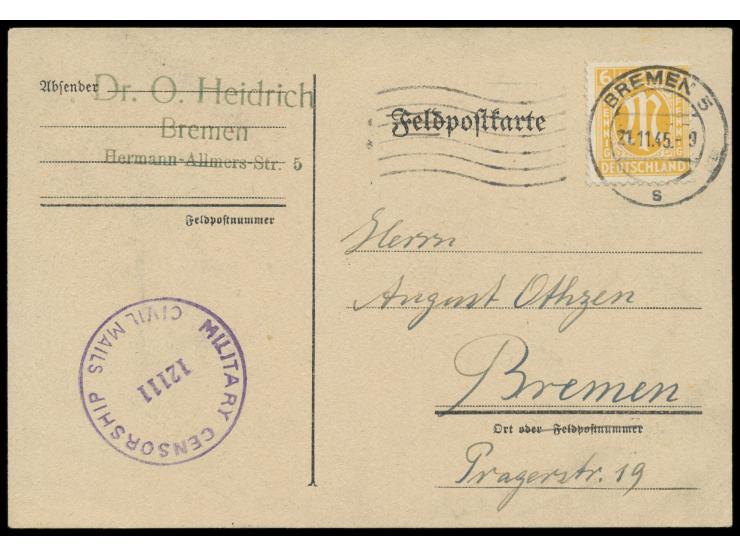 Absender Dr. O. Heidrich
Bremen
Hermann-Allmers-Str. 5
Feldpostnummer
MILITARY CENSORSHIP
CIVIL MAILS
12111
Feldpostkarte
6
DEUTSCHLAND
BREMEN 5
21.11.45.-9
s
Herrn
August Othzen
Bremen
Ort oder Feldpostnummer
Pragerstr. 19